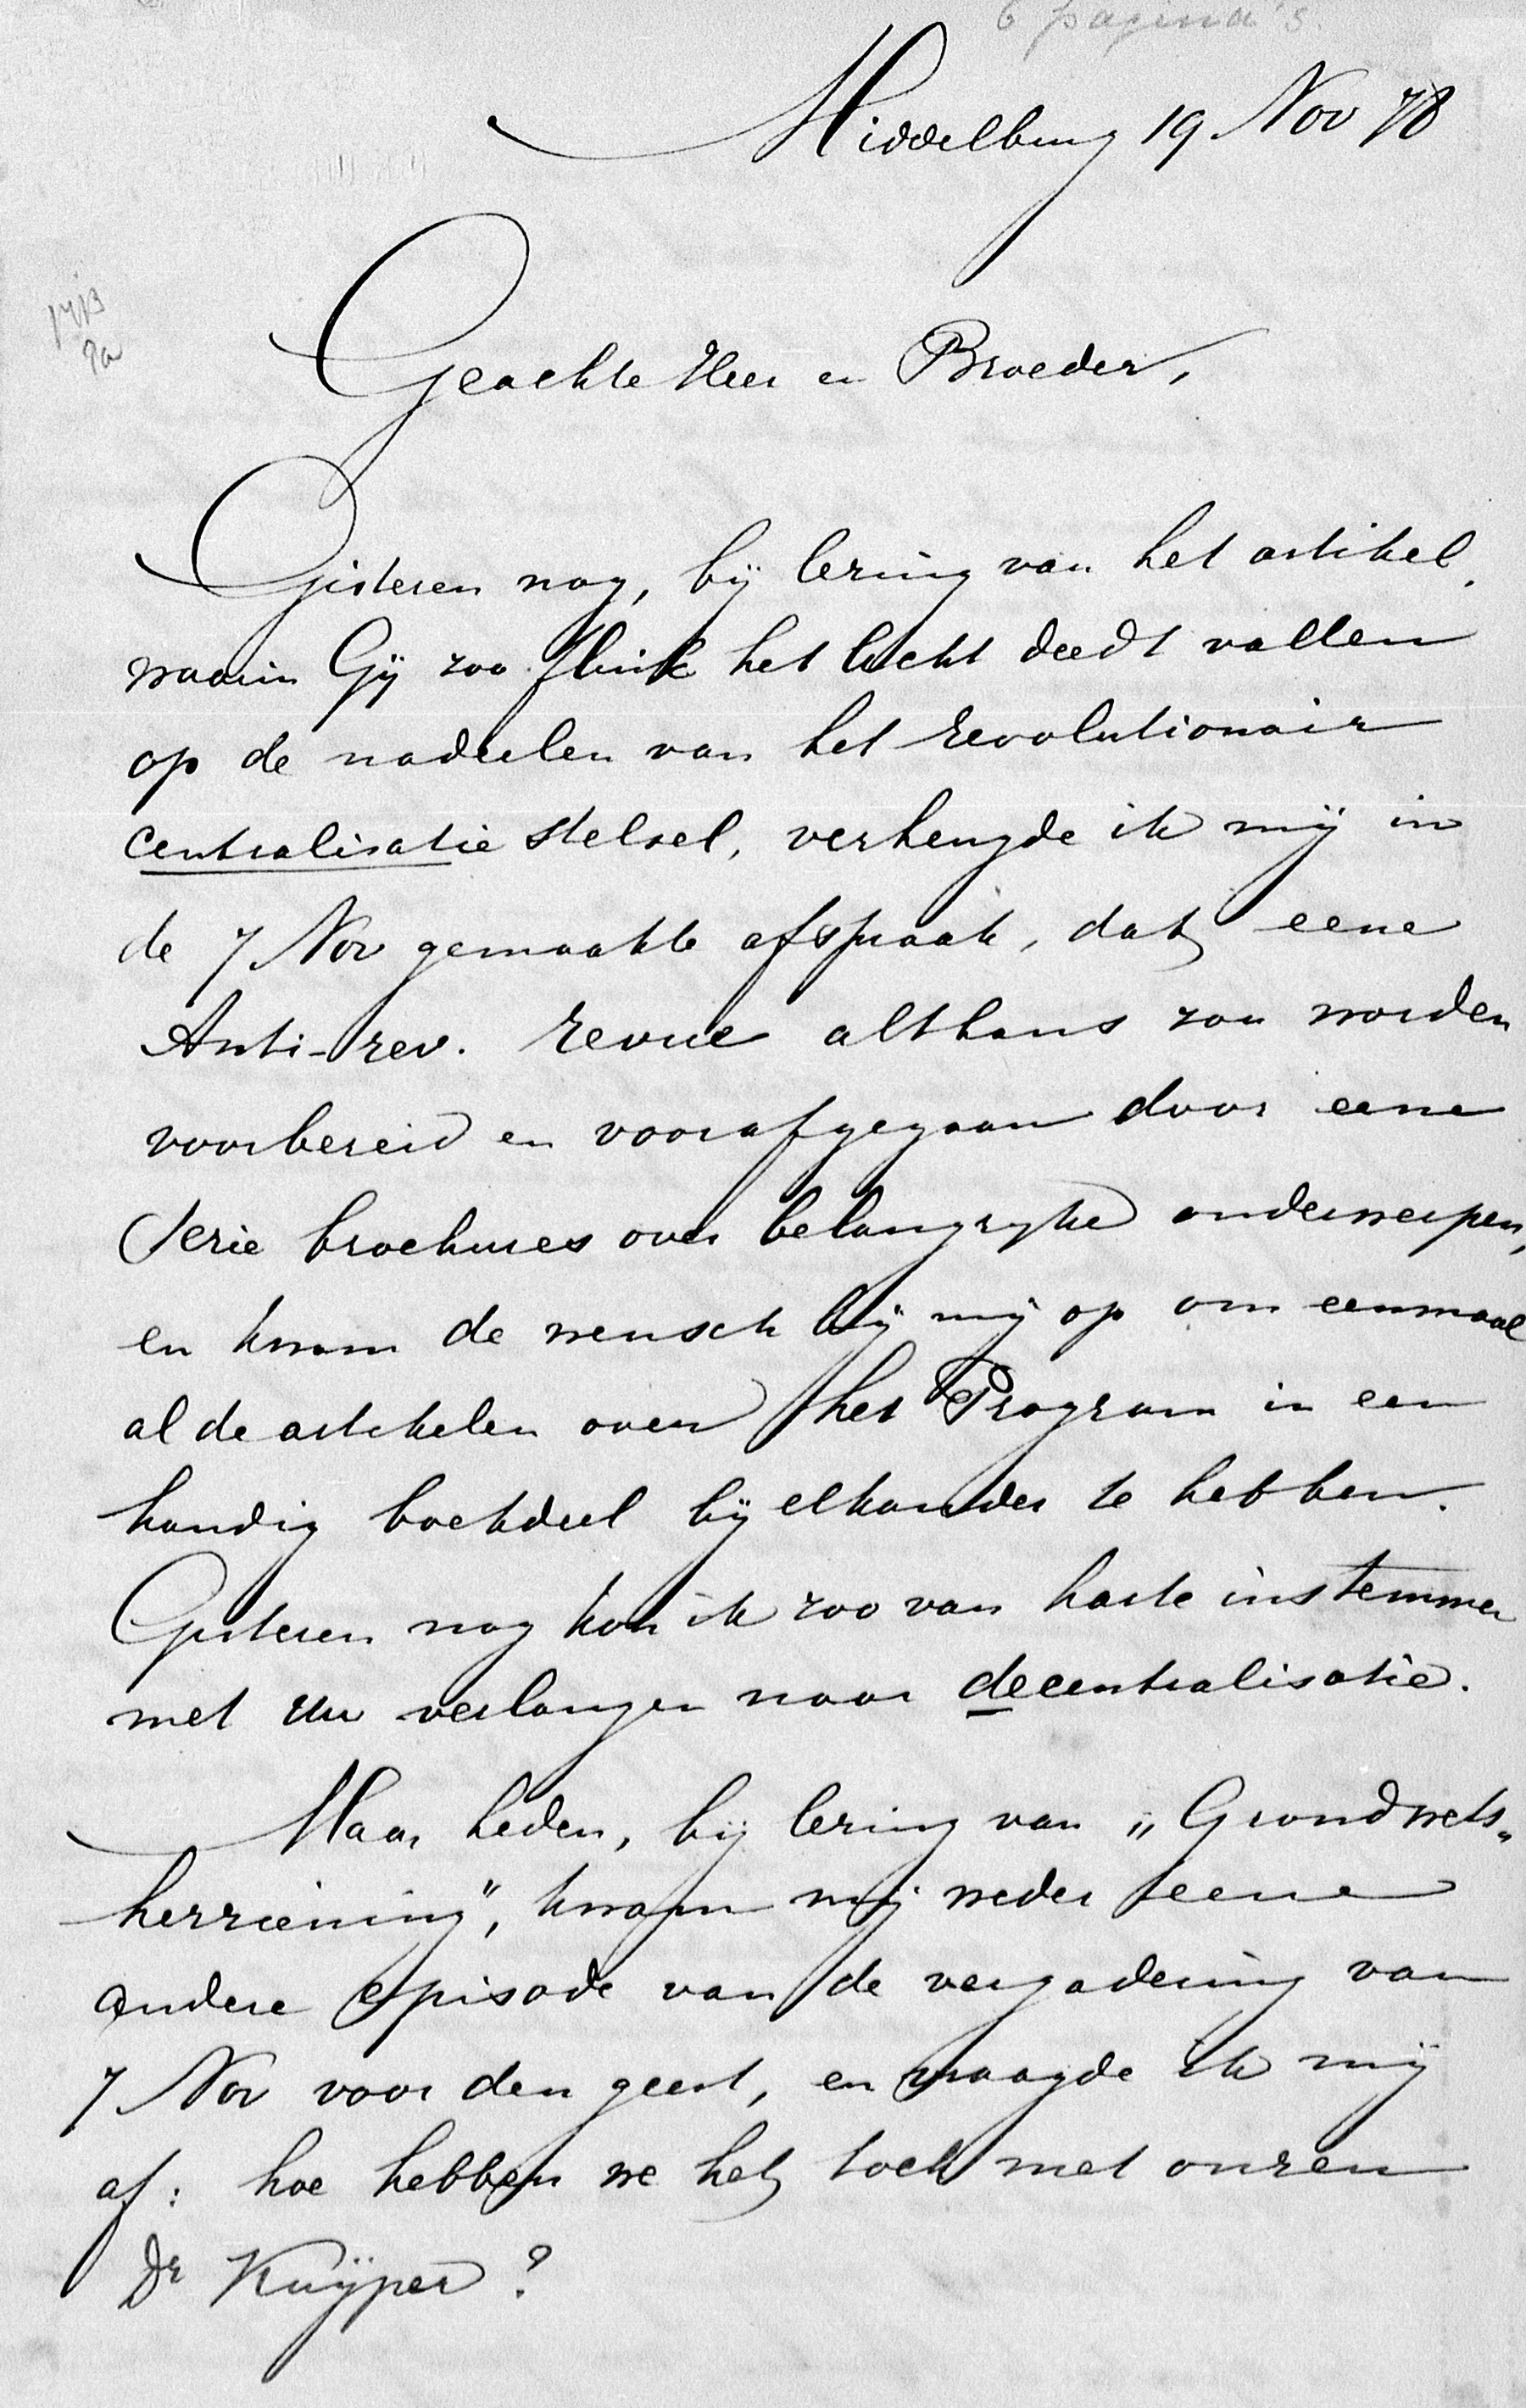 6 pagina's.
Middelburg 19 Nov 78
Geachte Heer en Broeder,
Gisteren nog, bij lezing van het artikel,
waarin Gij zoo flink het licht deedt vallen
op de nadeelen van het revolutionair
centralisatie stelsel, verheugde ik mij in
de 7 Nov gemaakte afspraak, dat eene
Anti-rev. revue althans zou worden
voorbereid en voorafgegaan door eene
Serie brochures over belangrijke onderwerpen,
en kwam de wensch bij mij op om eenmaal
al de artikelen over het Program in een
handig boekdeel bij elkander te hebben.
Gisteren nog kon ik zoo van harte instemmen
met Uw verlangen naar decentralisatie.
Maar heden, bij lezing van „Grondwets„
herziening”, kwam mij weder eene
andere episode van de vergadering van
7 Nov voor den geest, en vraagde ik mij
af: hoe hebben we het toch met onzen
Dr Kuÿper?